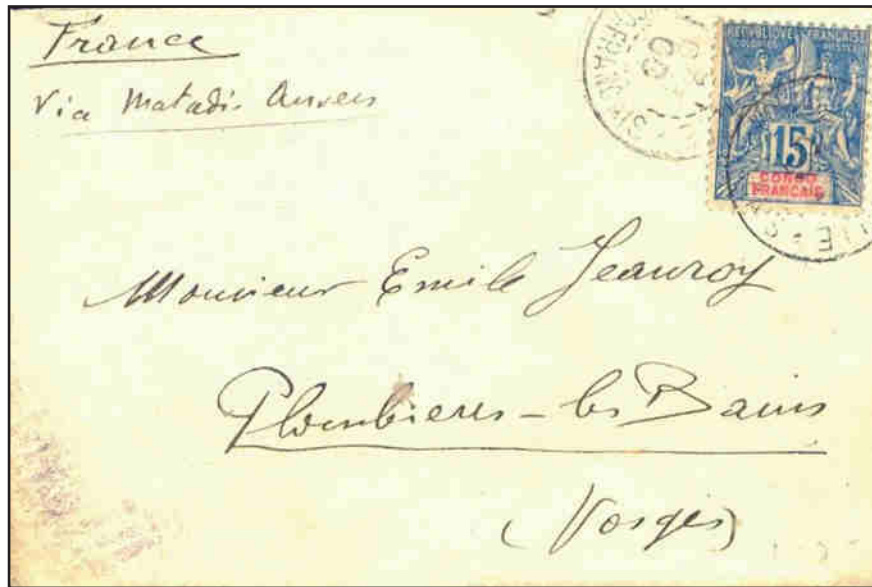 France
Via Matadi Anvers
RÉPUBLIQUE FRANÇAISE
COLONIES POSTES
15
CONGO
FRANÇAIS
Monsieur Emile Jeanroy
Plombieres-les Bains
(Vosges)